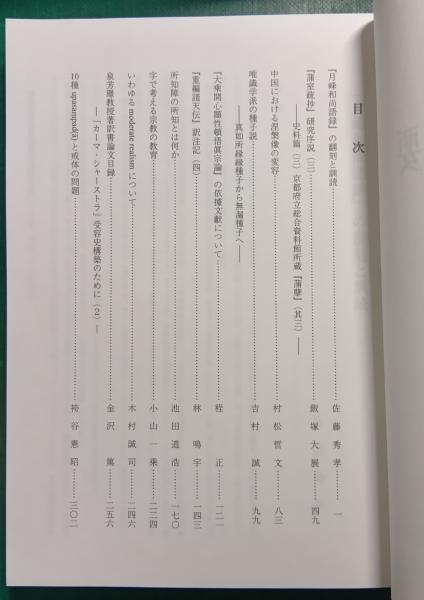 目次
『月峰和尚語録』の翻刻と訓読……佐藤秀孝……一
『蒲室疏抄』研究序説（三）……飯塚大展……四九
――史料篇（三）京都府立総合資料館所蔵『蒲𦾔』（其三）――
中国における涅槃像の変容……村松哲文……八三
唯識学派の種子説……吉村誠……九九
――真如所縁縁種子から無漏種子へ――
『大乗開心顯性頓悟眞宗論』の依據文献について……程正……一二一
『重編諸天伝』訳注記（四）……林鳴宇……一四三
所知障の所知とは何か……池田道浩……一七〇
字で考える宗教の教育……小山一乗……二二四
いわゆる moderate realism について……木村誠司……二四六
泉芳璟教授著訳書論文目録……金沢篤……二五六
――『カーマ・シャーストラ』受容史構築のために（2）――
10種 upasampad(ā) と戒体の問題……袴谷憲昭……三〇二